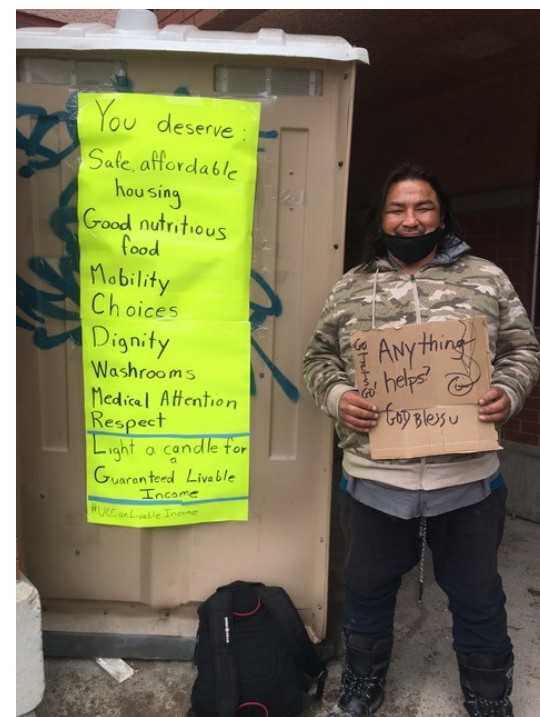 You deserve:
Safe, affordable
housing
Good nutritious
food
Mobility
Choices
Dignity
Washrooms
Medical Attention
Respect
Light a candle for
a
Guaranteed Livable
Income
#UCCanLivableIncome
ANything
helps?
GOD Bless u